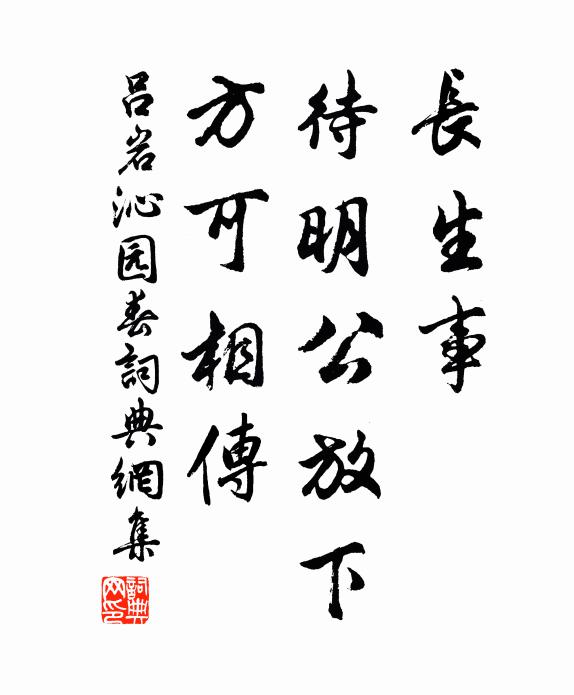 長生事
待明公放下
方可相傳
吕岩沁园春詞典網集
詞典网印